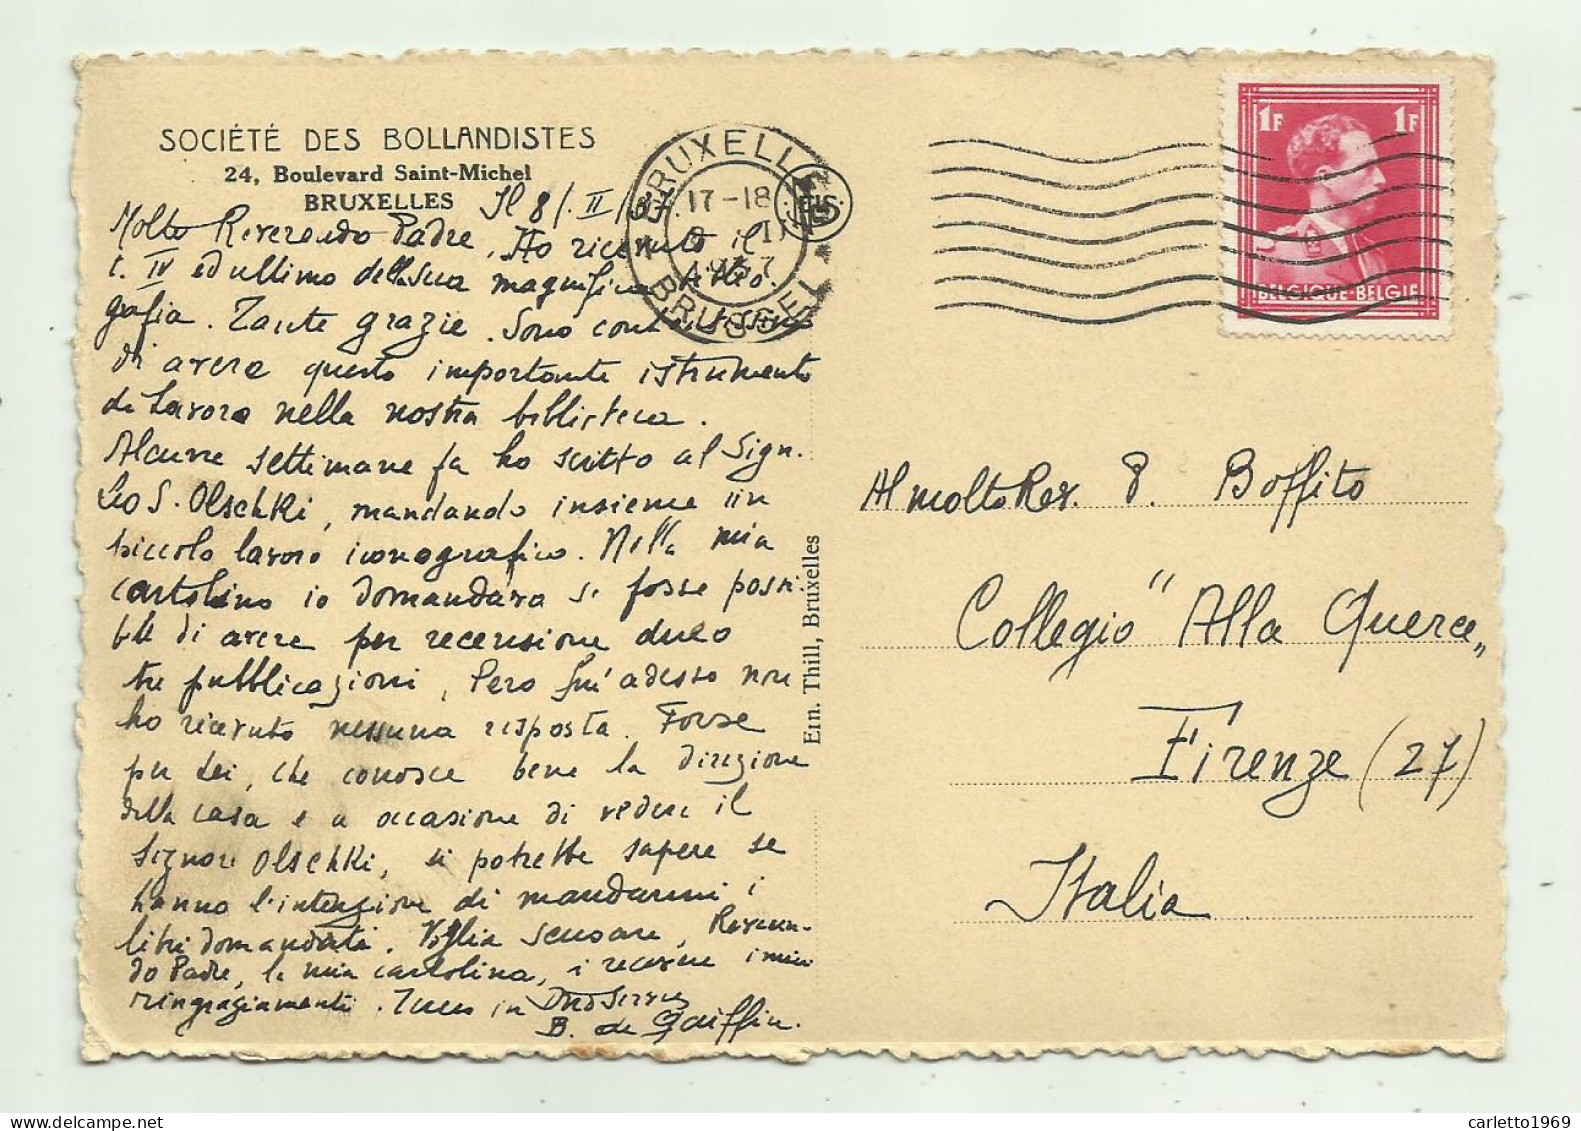 SOCIÉTÉ DES BOLLANDISTES
24, Boulevard Saint-Michel
BRUXELLES
Il 8/. II/37.
Molto Reverendo Padre, Ho ricevuto il
t. IV ed ultimo della sua magnifica Biblio-
grafia. Tante grazie. Sono contentissimo
di avere questo importante istrumento
di lavoro nella nostra biblioteca.
Alcune settimane fa ho scritto al Sign.
Leo S. Olschki, mandando insieme un
piccolo lavoro iconografico. Nella mia
cartolina io domandava se fosse possi-
bile di avere per recensione due o
tre pubblicazioni, Pero fin'adesso non
ho ricevuto nessuna risposta. Forse
per Lei, che conosce bene la direzione
della casa e a occasione di vedere il
Signore Olschki, si potrebbe sapere se
hanno l'intenzione di mandarmi i
libri domandati. Voglia scusare, Reveren-
do Padre, la mia cartolina, i recevere i miei
ringraziamenti. in Dno Servus
B. de Gaiffier.
Em. Thill, Bruxelles
BRUXELLES
17-18
1937
BRUSSEL
1F 1F
BELGIQUE-BELGIE
Al molto Rev. P. Boffito
Collegio "Alla Querce„
Firenze (27)
Italia
carletto1969